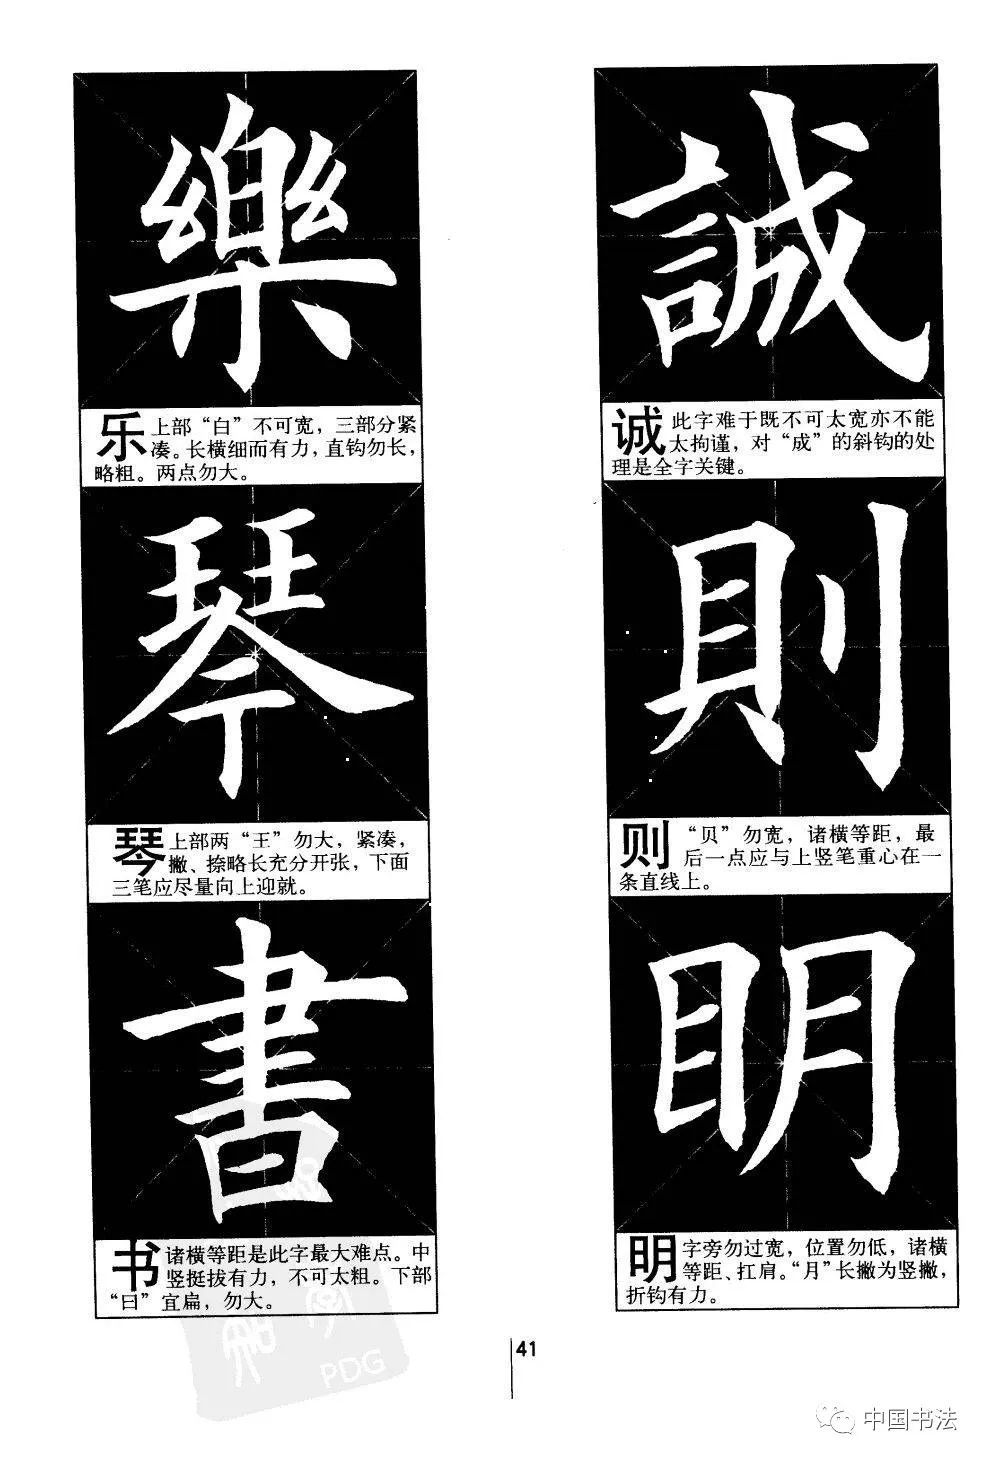 誠
诚 此字难于既不可太宽亦不能
太拘谨，对“成”的斜钩的处
理是全字关键。
則
则 “贝”勿宽，诸横等距，最
后一点应与上竖笔重心在一
条直线上。
明
明 字旁勿过宽，位置勿低，诸横
等距、扛肩。“月”长撇为竖撇，
折钩有力。
樂
乐 上部“白”不可宽，三部分紧
凑。长横细而有力，直钩勿长，
略粗。两点勿大。
琴
琴 上部两“王”勿大，紧凑，
撇、捺略长充分开张，下面
三笔应尽量向上迎就。
書
书 诸横等距是此字最大难点。中
竖挺拔有力，不可太粗。下部
“曰”宜扁，勿大。
41
PDG
中国书法